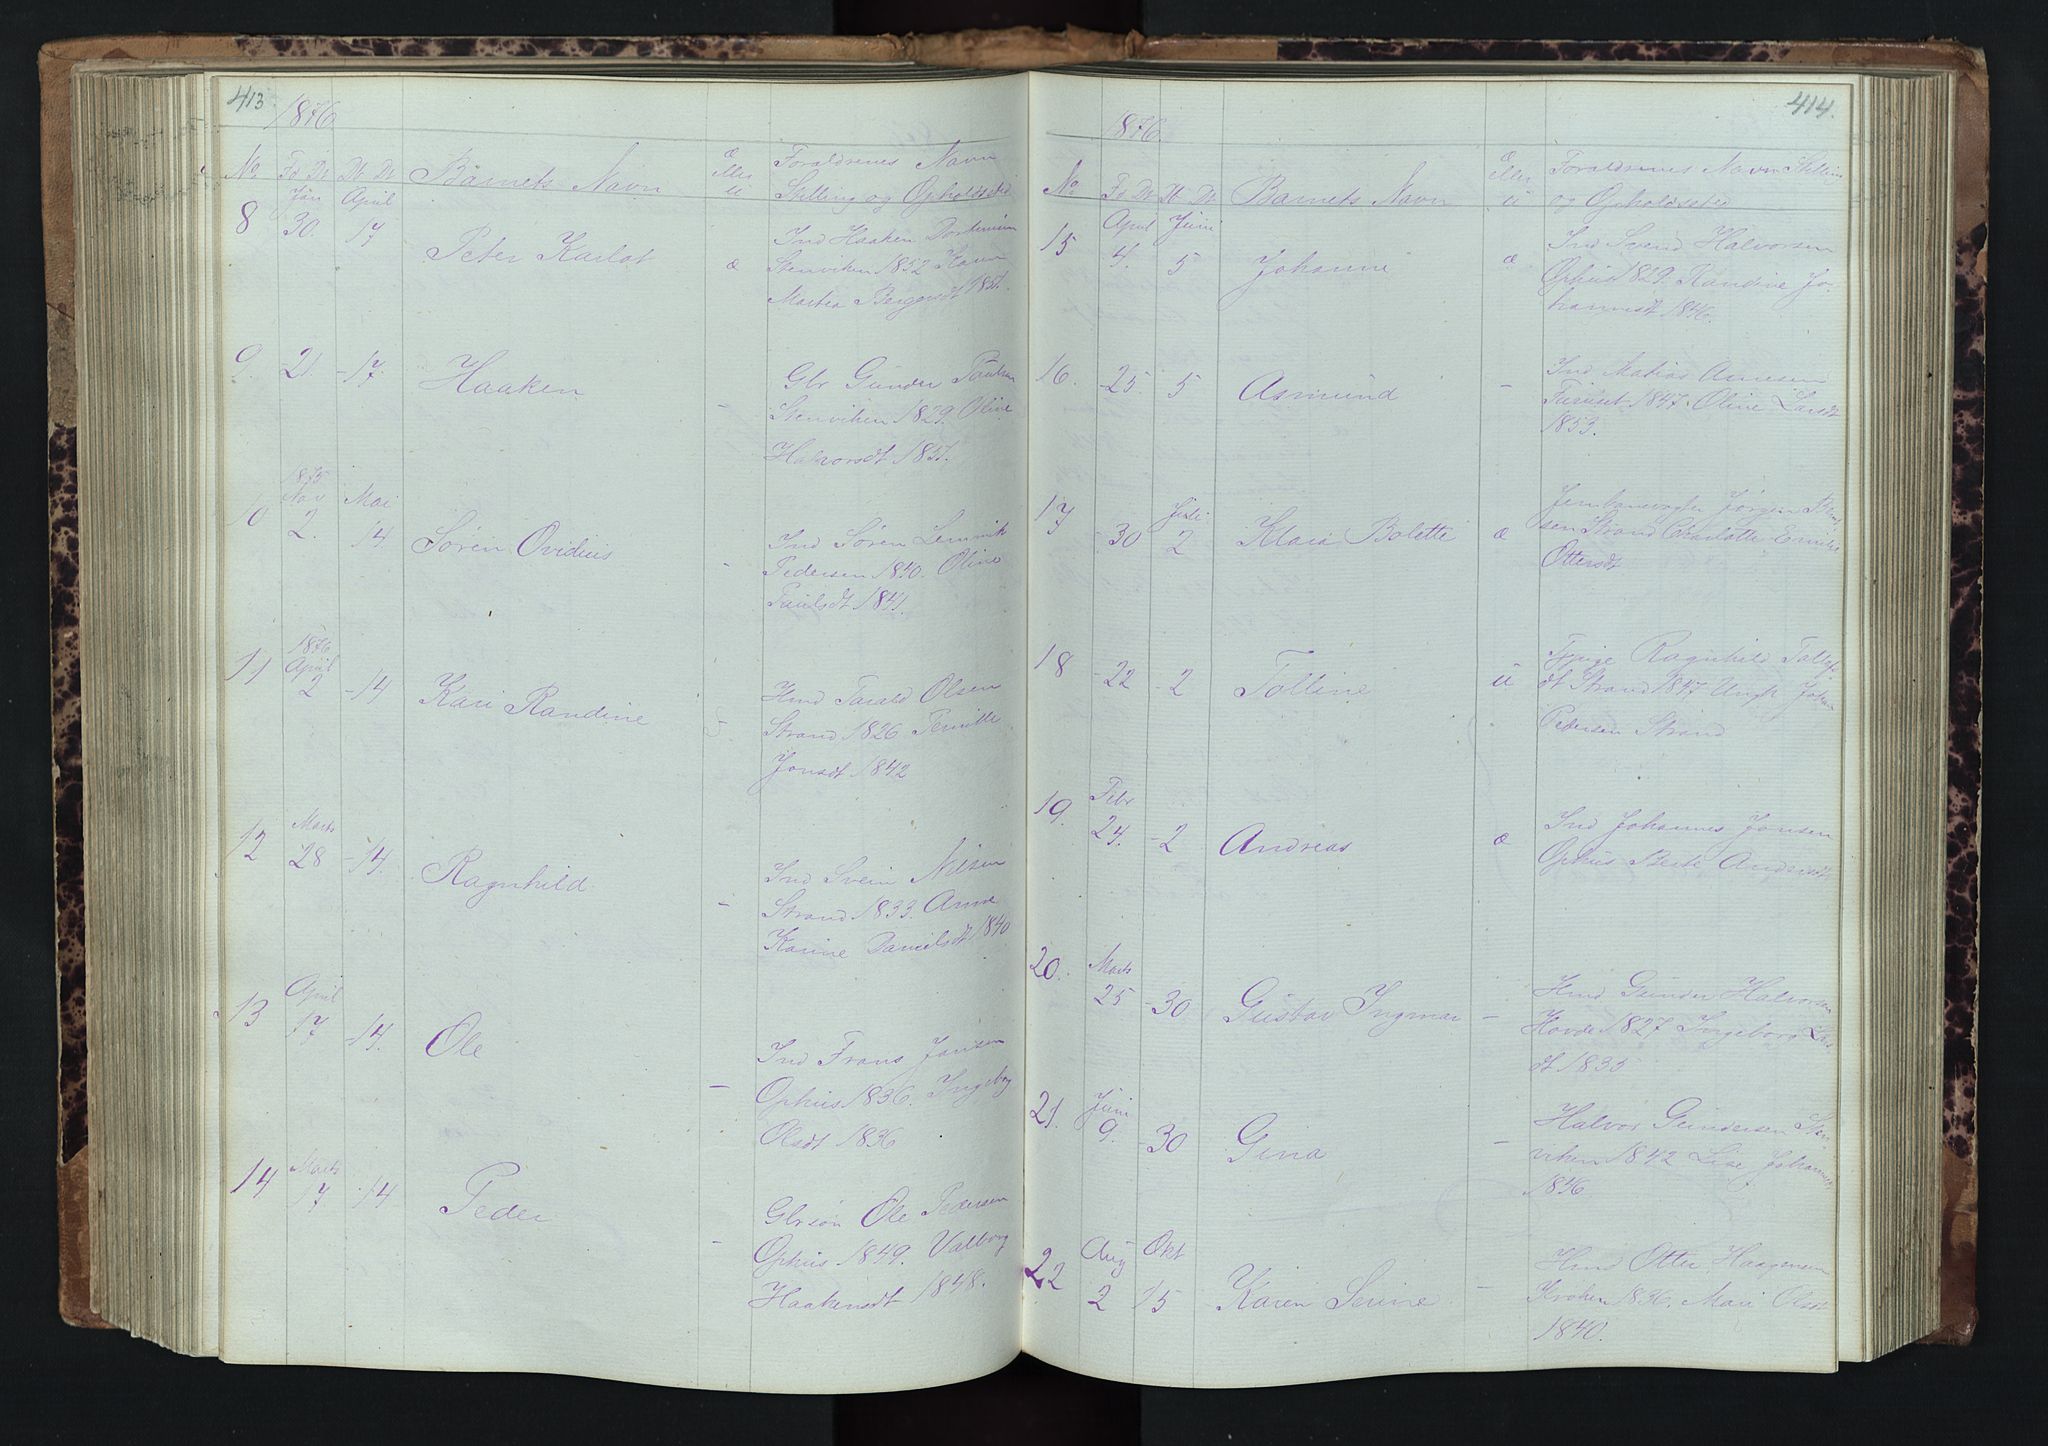 413
1876
No Fd Dt Db Dt Barnets Navn æ eller u Foraldrenes Navn
Stilling og Opholdssted
8 Jan 30. April 17 Peter Karlot æ Ind Haaken
Stenviken 1852 Karen
Martea Bergersdt 1851.
9. 21. -17. Haaken - Gbr Gunder Paulsen
Stenviken 1829. Oline
Halvorsdt 1837.
10 1875 Nov 2. Mai 14. Søren Ovidius - Ind Søren Lemvik
Pedersen 1840. Oline
Paulsdt 1841.
11 1876 April 2 -14 Kari Randine - Hmd Tarald Olsen
Strand 1826 Pernille
Jonsdt 1842
12 Marts 28 -14. Ragnhild. - Ind Svein Nilsen
Strand 1833. Anne
Karine Danielsdt 1840
13 April 17 -14. Ole - Ind Frans Jansen
Ophus 1836. Ingeborg
Olsdt 1836
14 Marts 17. -14 Peder - Gbrsøn Ole Pedersen
Ophus 1849. Valborg
Haakensdt 1848.
414.
1876.
No Fd Dt Db Dt Barnets Navn æ eller u Foraldrenes Navn Stilling
og Opholdssted
15 April 4. Juni 5 Johanne æ Ind Svend Halvorsen
Ophus 1829. Randine Jo-
hannesdt 1846.
16. -25. 5 Asmund - Ind Matias Arnesen
Turuset 1847. Oline Larsdt
1853.
17 -30 Juli 2 Klara Bolette æ Jernbanevogter Jørgen
Strand Charlotte Emilie
Ottersdt
18 -22 -2 Tolline u Pige Ragnhild
Strand 1847 Ungk Johan
Pedersen Strand
19. Febr 24. -2 Andreas æ Ind Johannes Jonsen
Ophus Berte Andersdt
20. Marts 25 -30 Gustav Ingmar - Hmd Gunder Halvorsen
Hovde 1827 Ingeborg
dt 1835
21. Juni 9. -30 Gina - Halvor Gundersen Sten-
viken 1842 Lise Johannesdt
1846
22 Aug 2 Okt 15 Karen Serine - Hmd Otter Haagensen
Kroken 1836. Mari Olsdt
1840.